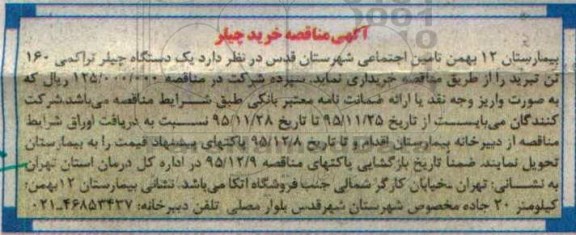 آگهی مناقصه خرید چیلر
بیمارستان ۱۲ بهمن تامین اجتماعی شهرستان قدس در نظر دارد یک دستگاه چیلر تراکمی ۱۶۰
تن تبرید را از طریق مناقصه خریداری نماید. سپرده شرکت در مناقصه ۱۲۵/۰۰۰/۰۰۰ ریال که
به صورت واریز وجه نقد یا ارائه ضمانت نامه معتبر بانکی طبق شرایط مناقصه می‌باشد.شرکت
کنندگان می‌بایست از تاریخ ۹۵/۱۱/۲۵ تا تاریخ ۹۵/۱۱/۲۸ نسبت به دریافت اوراق شرایط
مناقصه از دبیرخانه بیمارستان اقدام و تا تاریخ ۹۵/۱۲/۸ پاکتهای پیشنهاد قیمت را به بیمارستان
تحویل نمایند. ضمناً تاریخ بازگشایی پاکتهای مناقصه ۹۵/۱۲/۹ در اداره کل درمان استان تهران
به نشانی: تهران ـخیابان کارگر شمالی جنب فروشگاه اتکا می‌باشد. نشانی بیمارستان ۱۲بهمن:
کیلومتر ۲۰ جاده مخصوص شهرستان شهرقدس بلوار مصلی تلفن دبیرخانه: ۴۶۸۵۳۴۳۷ـ۰۲۱